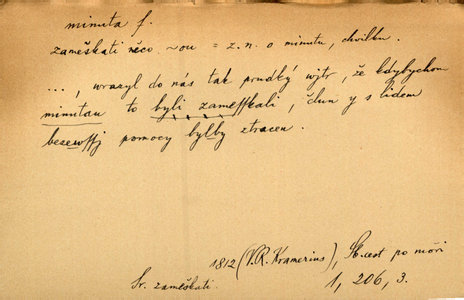 minuta f.
zameškati něco ~ou = z. n. o minutu, chvilku.
..., wrazyl do nás tak prudký wjtr, že kdybychom
minutau to byli zamesskali, člun y s lidem
bezewssj pomocy bylby ztracen.
1812 (V.R. Kramerius), Sb. cest po moři
Sr. zameškati. 1, 206, 3.